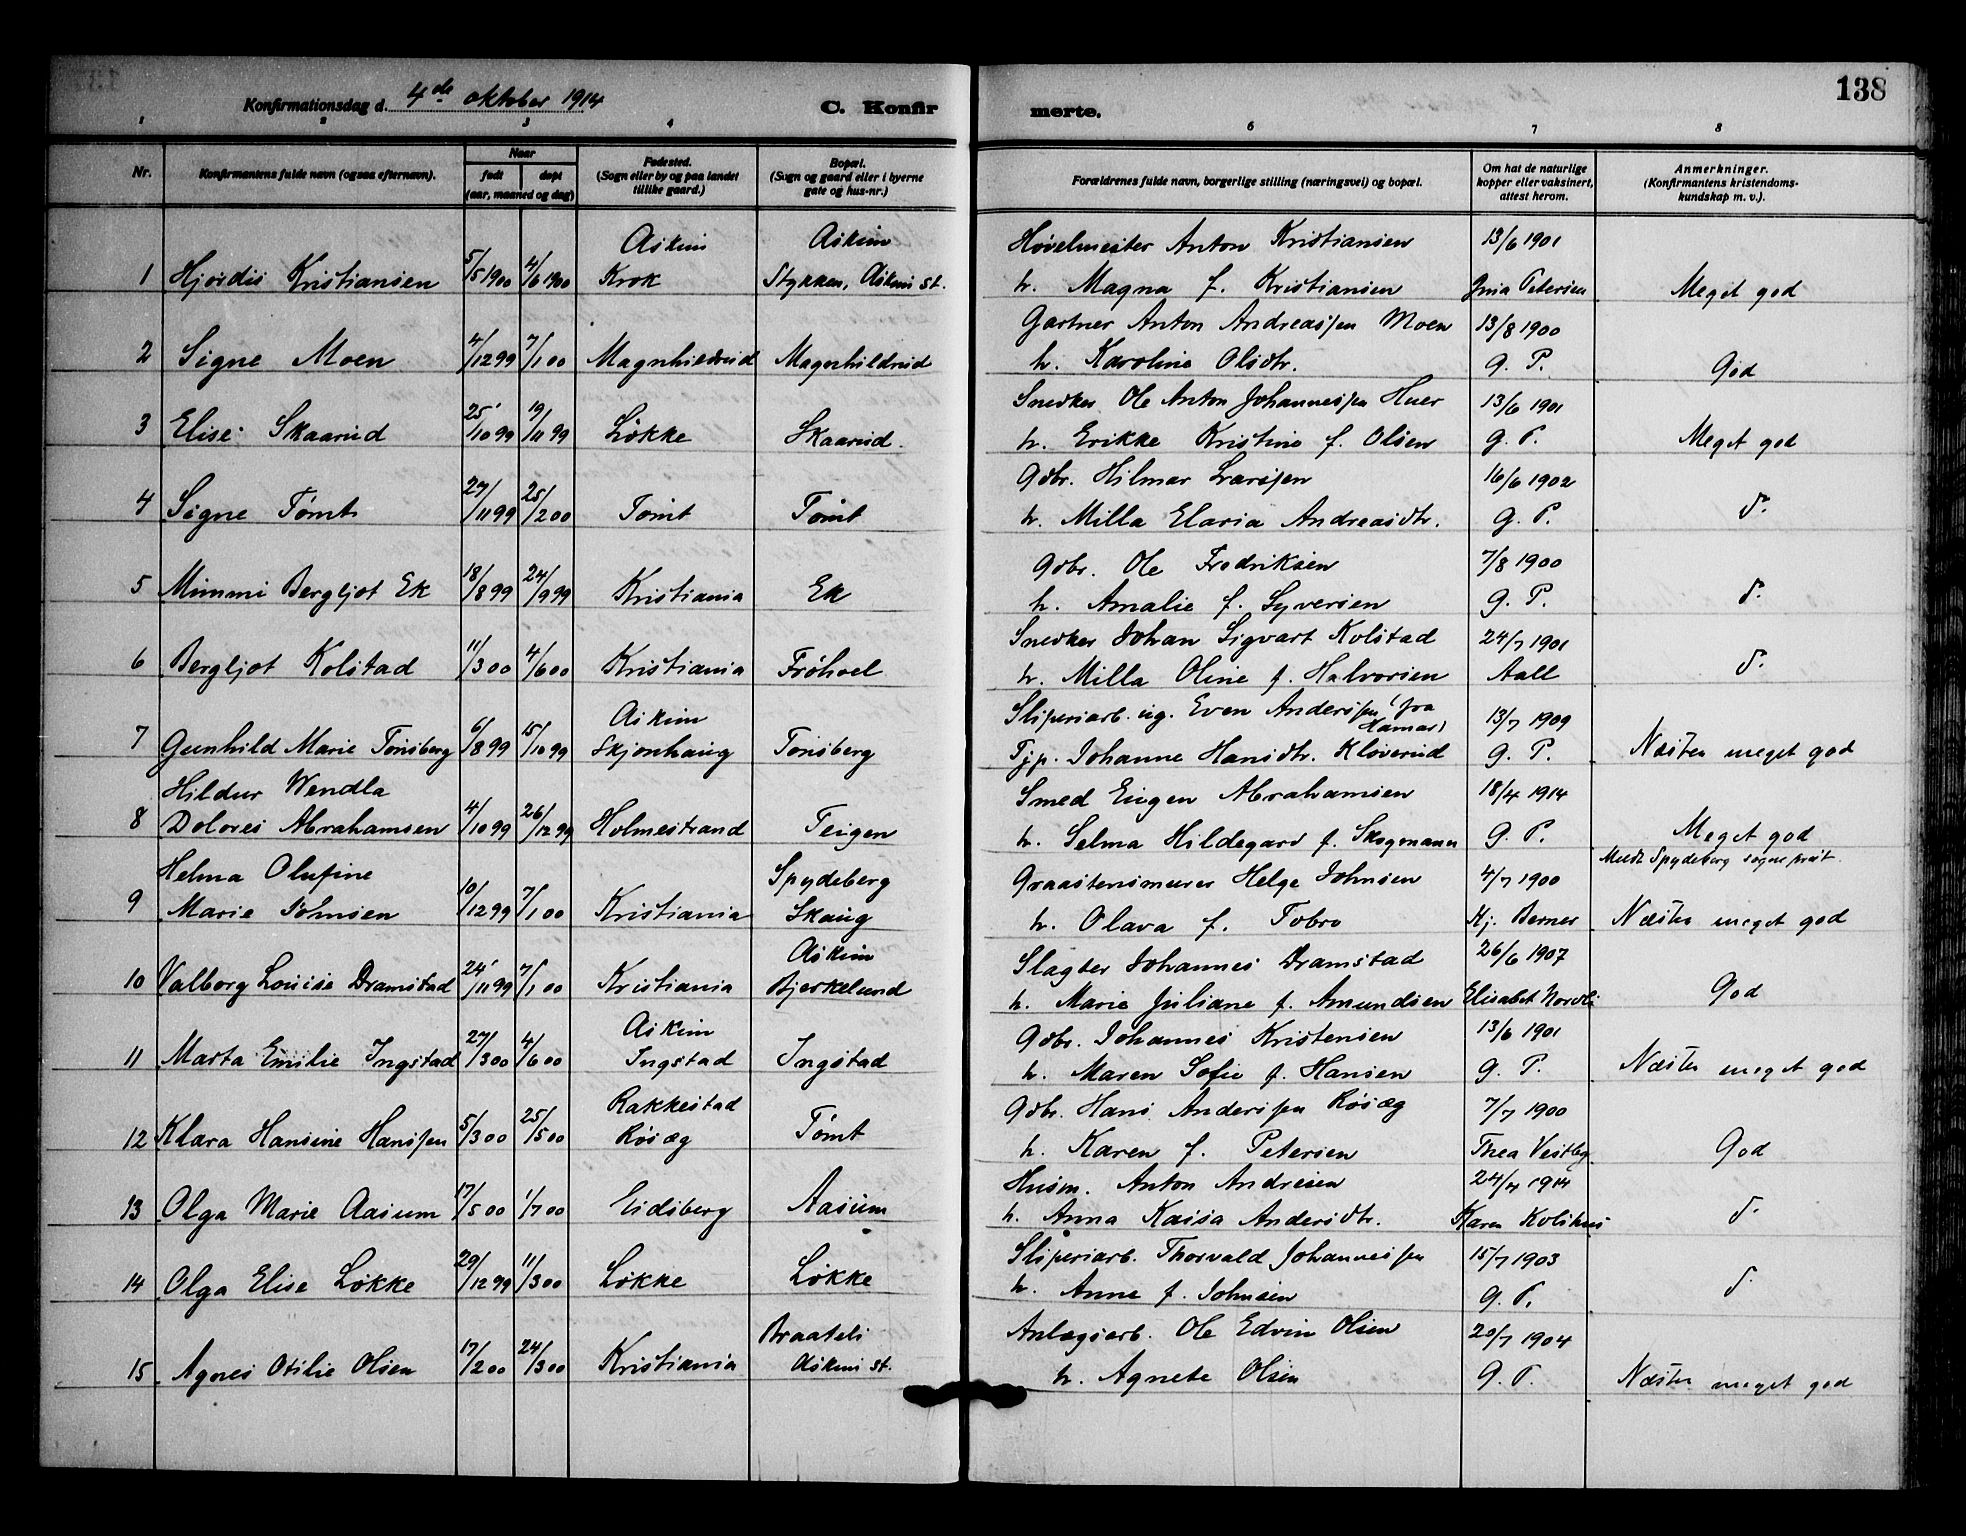 138
Konfirmationsdag d. 4de oktober 1914
C. Konfir
merte.
1 2 3 4 6 7 8
Nr.
Konfirmantens fulde navn (ogsaa efternavn).
Naar
født
døpt
(aar, maaned og dag)
Fødested.
(Sogn eller by og paa landet
tillike gaard.)
Bopæl.
(Sogn og gaard eller i byerne
gate og hus-nr.)
Forældrenes fulde navn, borgerlige stilling (næringsvei) og bopæl.
Om hat de naturlige
kopper eller vaksinert,
attest herom.
Anmerkninger.
(Konfirmantens kristendoms-
kundskap m. v.).
Askim Askim Høvelmester Anton Kristiansen 13/6 1901
1 Hjørdis Kristiansen 5/5 1900 4/6 1900 Krok Stykken, Askim st. h. Magna f. Kristiansen Gina Petersen Meget god
Gartner Anton Andreassen Moen 13/8 1900
2 Signe Moen 4/12 99 7/1 00 Magnhildrud Magnhildrud h. Karoline Olsdtr. G. P. God
Snedker Ole Anton Johannessen Huer 13/6 1901
3 Elise Skaarud 25/10 99 19/11 99 Løkke Skaarud. h. Erikke Kristine f. Olsen G. P. Meget god
Gdbr. Hilmar Larssen 16/6 1902
4 Signe Tømt 27/11 99 25/2 00 Tømt Tømt h. Milla Elaria Andreasdtr. G. P. d.
Gdbr. Ole Fredriksen 7/8 1900
5 Mimmi Bergljot Ek 18/8 99 24/9 99 Kristiania Ek h. Amalie f. Syversen G. P. d.
Snedker Johan Sigvart Kolstad 24/7 1901
6 Bergljot Kolstad 11/3 00 4/6 00 Kristiania Frøhoel h. Milla Oline f. Halvorsen Aall d.
Askim Sliperiarb. ug. Even Anderssen (fra 13/7 1909
Hamar)
7 Gunhild Marie Tonsberg 6/8 99 15/10 99 Skjønhaug Tonsberg Tjp. Johanne Hansdtr. Kløverud G. P. Næsten meget god
Hildur Wendla Smed Eugen Abrahamsen 18/4 1914
8 Dolores Abrahamsen 4/10 99 26/12 99 Holmestrand Teigen h. Selma Hildegard f. Skogmann G. P. Meget god
Meldt Spydeberg sogneprest.
Helma Olufine Spydeberg Graastensmurer Helge Johnsen 4/7 1900
9 Marie Johnsen 10/12 99 7/1 00 Kristiania Skaug h. Olava f. Tobro Kj. Berner Næsten meget god
Askim Slagter Johannes Dramstad 26/6 1907
10 Valborg Louise Dramstad 24/11 99 7/1 00 Kristiania Bjerkelund h. Marie Juliane f. Amundsen Elisabet Nordli God
Askim Gdbr. Johannes Kristensen 13/6 1901
11 Marta Emilie Ingstad 27/3 00 4/6 00 Ingstad Ingstad h. Maren Sofie f. Hansen G. P. Næsten meget god
Rakkestad Gdbr. Hans Anderssen Røsæg 7/7 1900
12 Klara Hansine Hanssen 5/3 00 25/5 00 Røsæg Tømt h. Karen f. Petersen Thea Vestby God
Husm. Anton Andresen 24/7 1914
13 Olga Marie Aasum 17/5 00 1/7 00 Eidsberg Aasum h. Anna Kaisa Andersdtr. Karen Kolshus d.
Sliperiarb. Thorvald Johannessen 15/7 1903
14 Olga Elise Løkke 29/12 99 11/3 00 Løkke Løkke h. Anne f. Johnsen G. P. d.
Braateli Anlægsarb. Ole Edvin Olsen 20/7 1904
15 Agnes Otilie Olsen 17/2 00 24/3 00 Kristiania Askim st. h. Agnete Olsen G. P. Næsten meget god